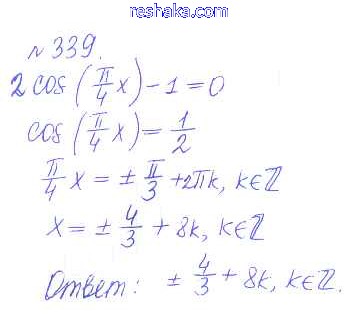 reshaka.com
№ 339.
2 cos (π/4 x) - 1 = 0
cos (π/4 x) = 1/2
π/4 x = ± π/3 + 2πk, k∈ℤ
x = ± 4/3 + 8k, k∈ℤ
Ответ: ± 4/3 + 8k, k∈ℤ.